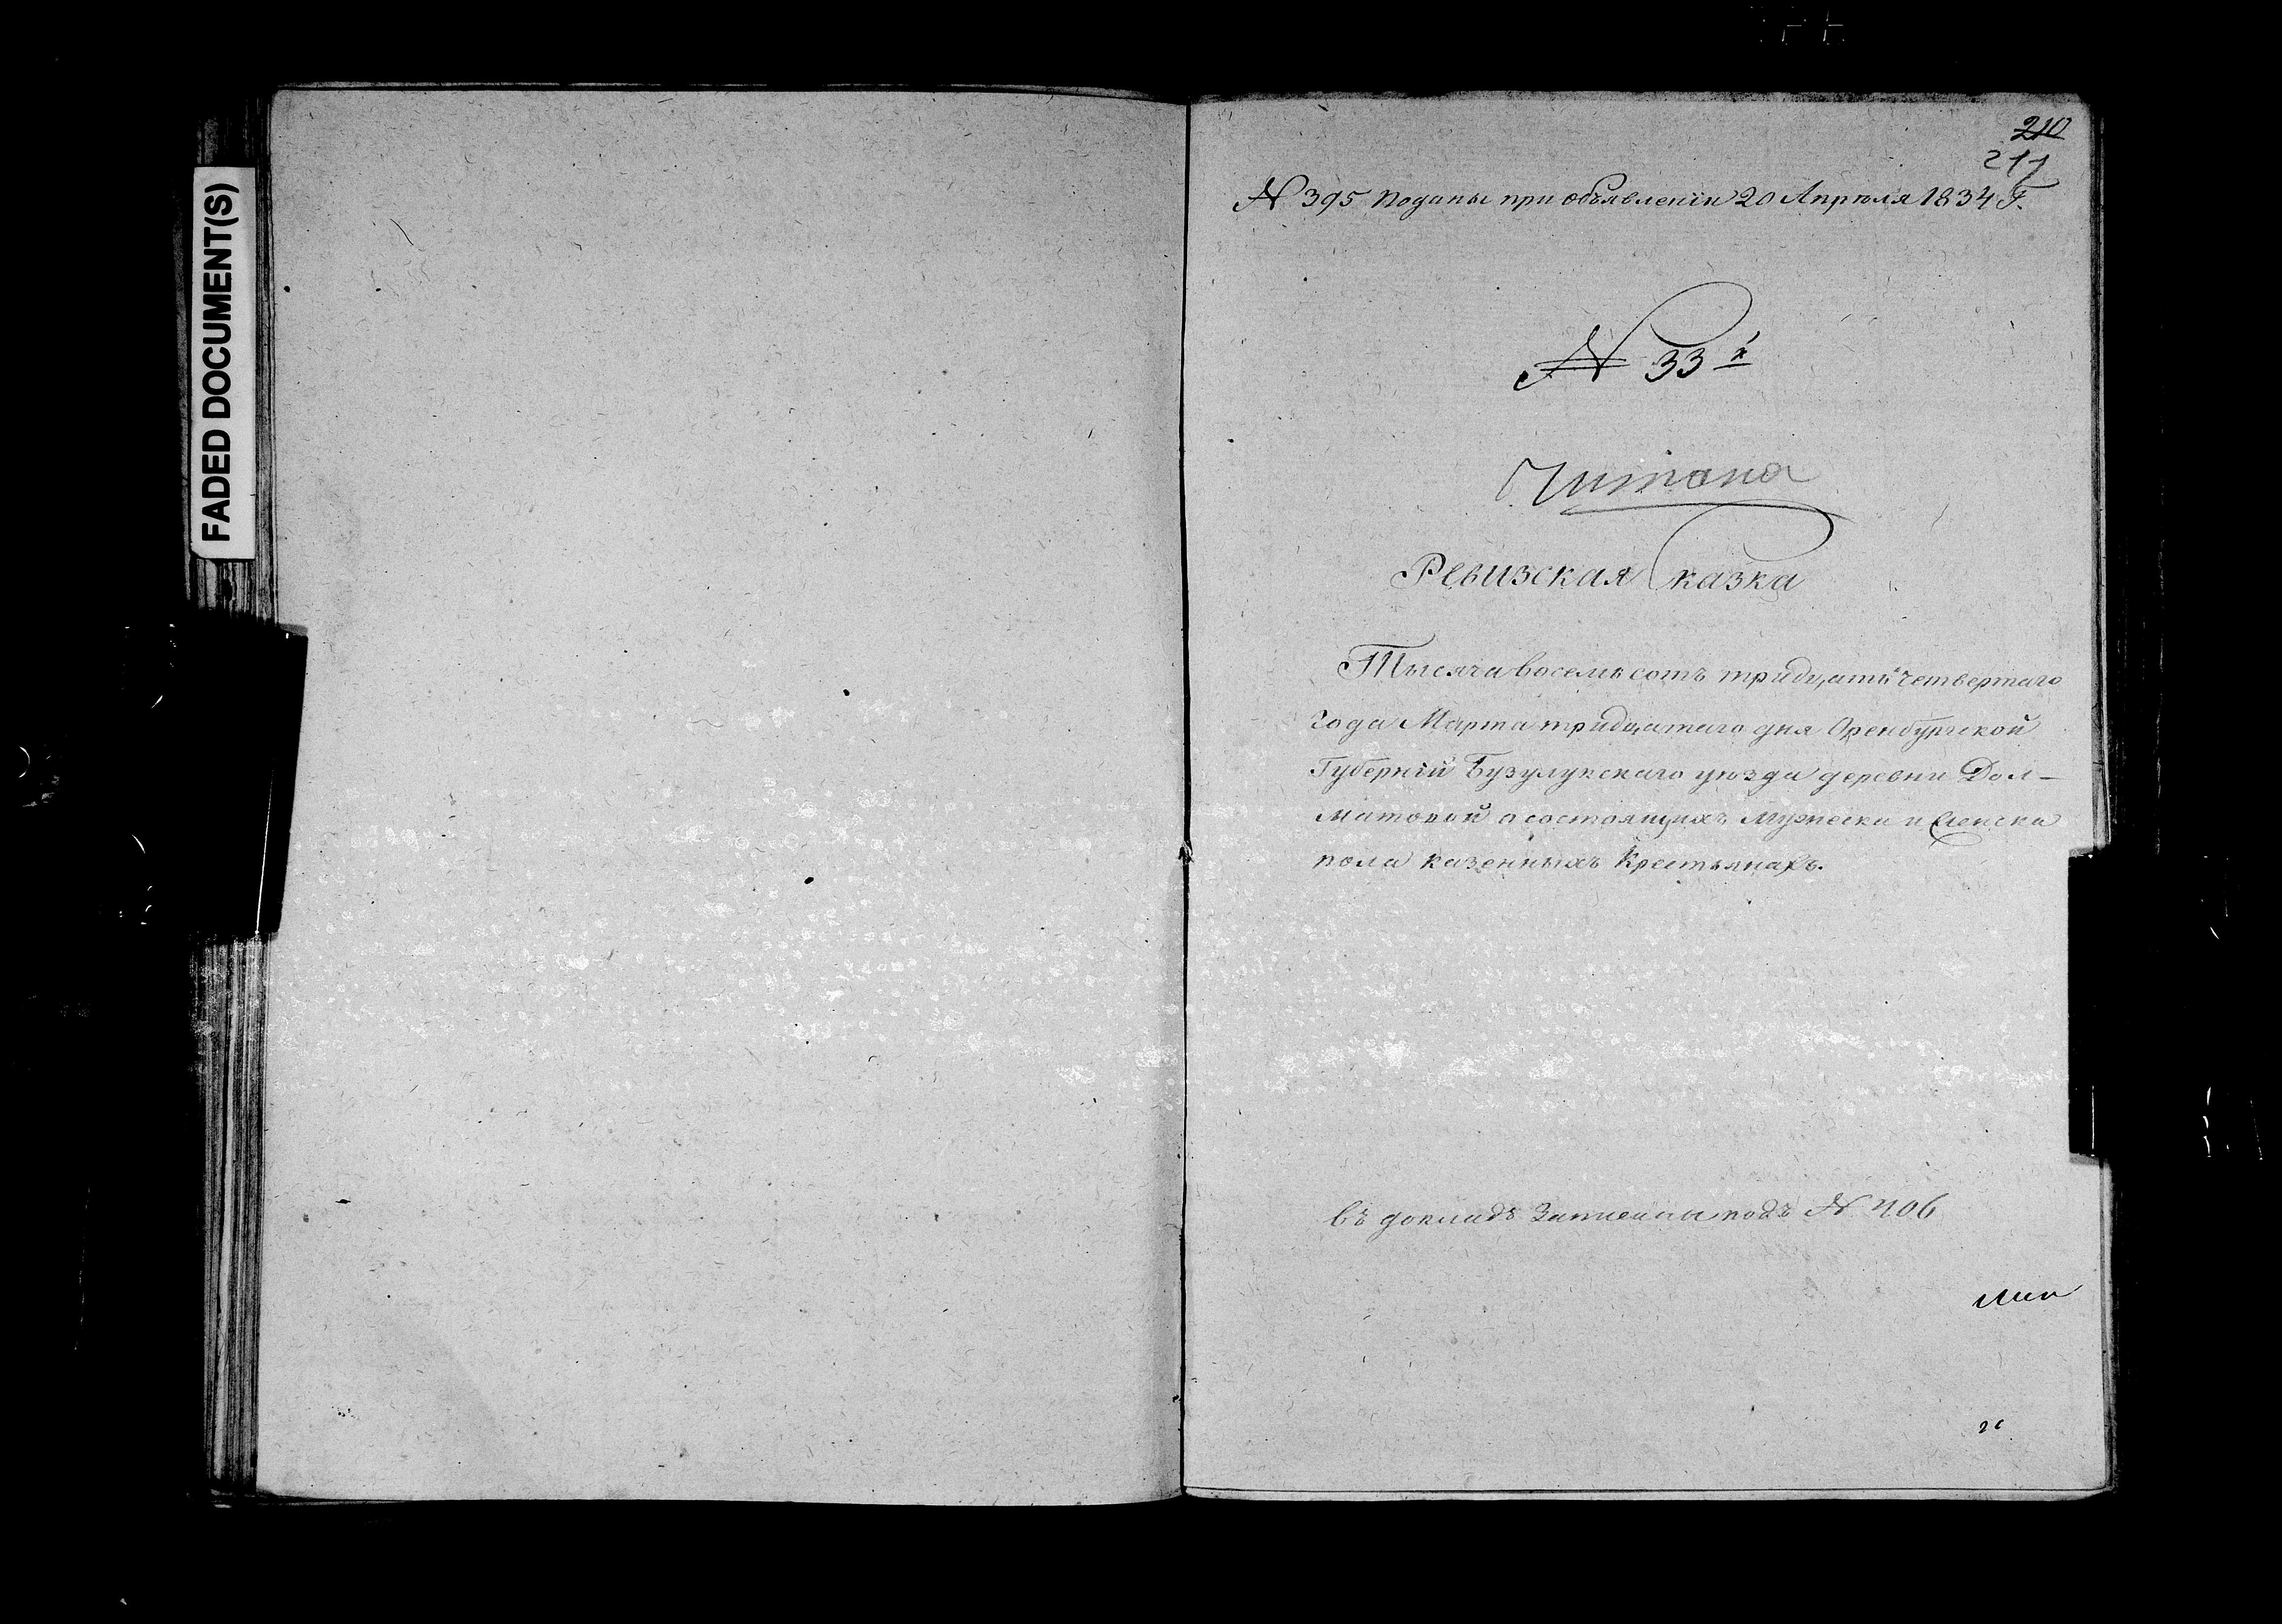 FADED DOCUMENT(S)
210
211
№ 395 Поданы при объявленіи 20 Апрѣля 1834 Г.
№ 33й
Читана
Ревизская Сказка
Тысяча восемь сотъ тридцать четвертаго
года Марта тридцатаго дня Оренбургской
Губерніи Бузулукскаго уѣзда деревни Дол-
матовой о состоящихъ мужеска и женска
пола казенныхъ Крестьянахъ.
въ докладъ Записана подъ № 406